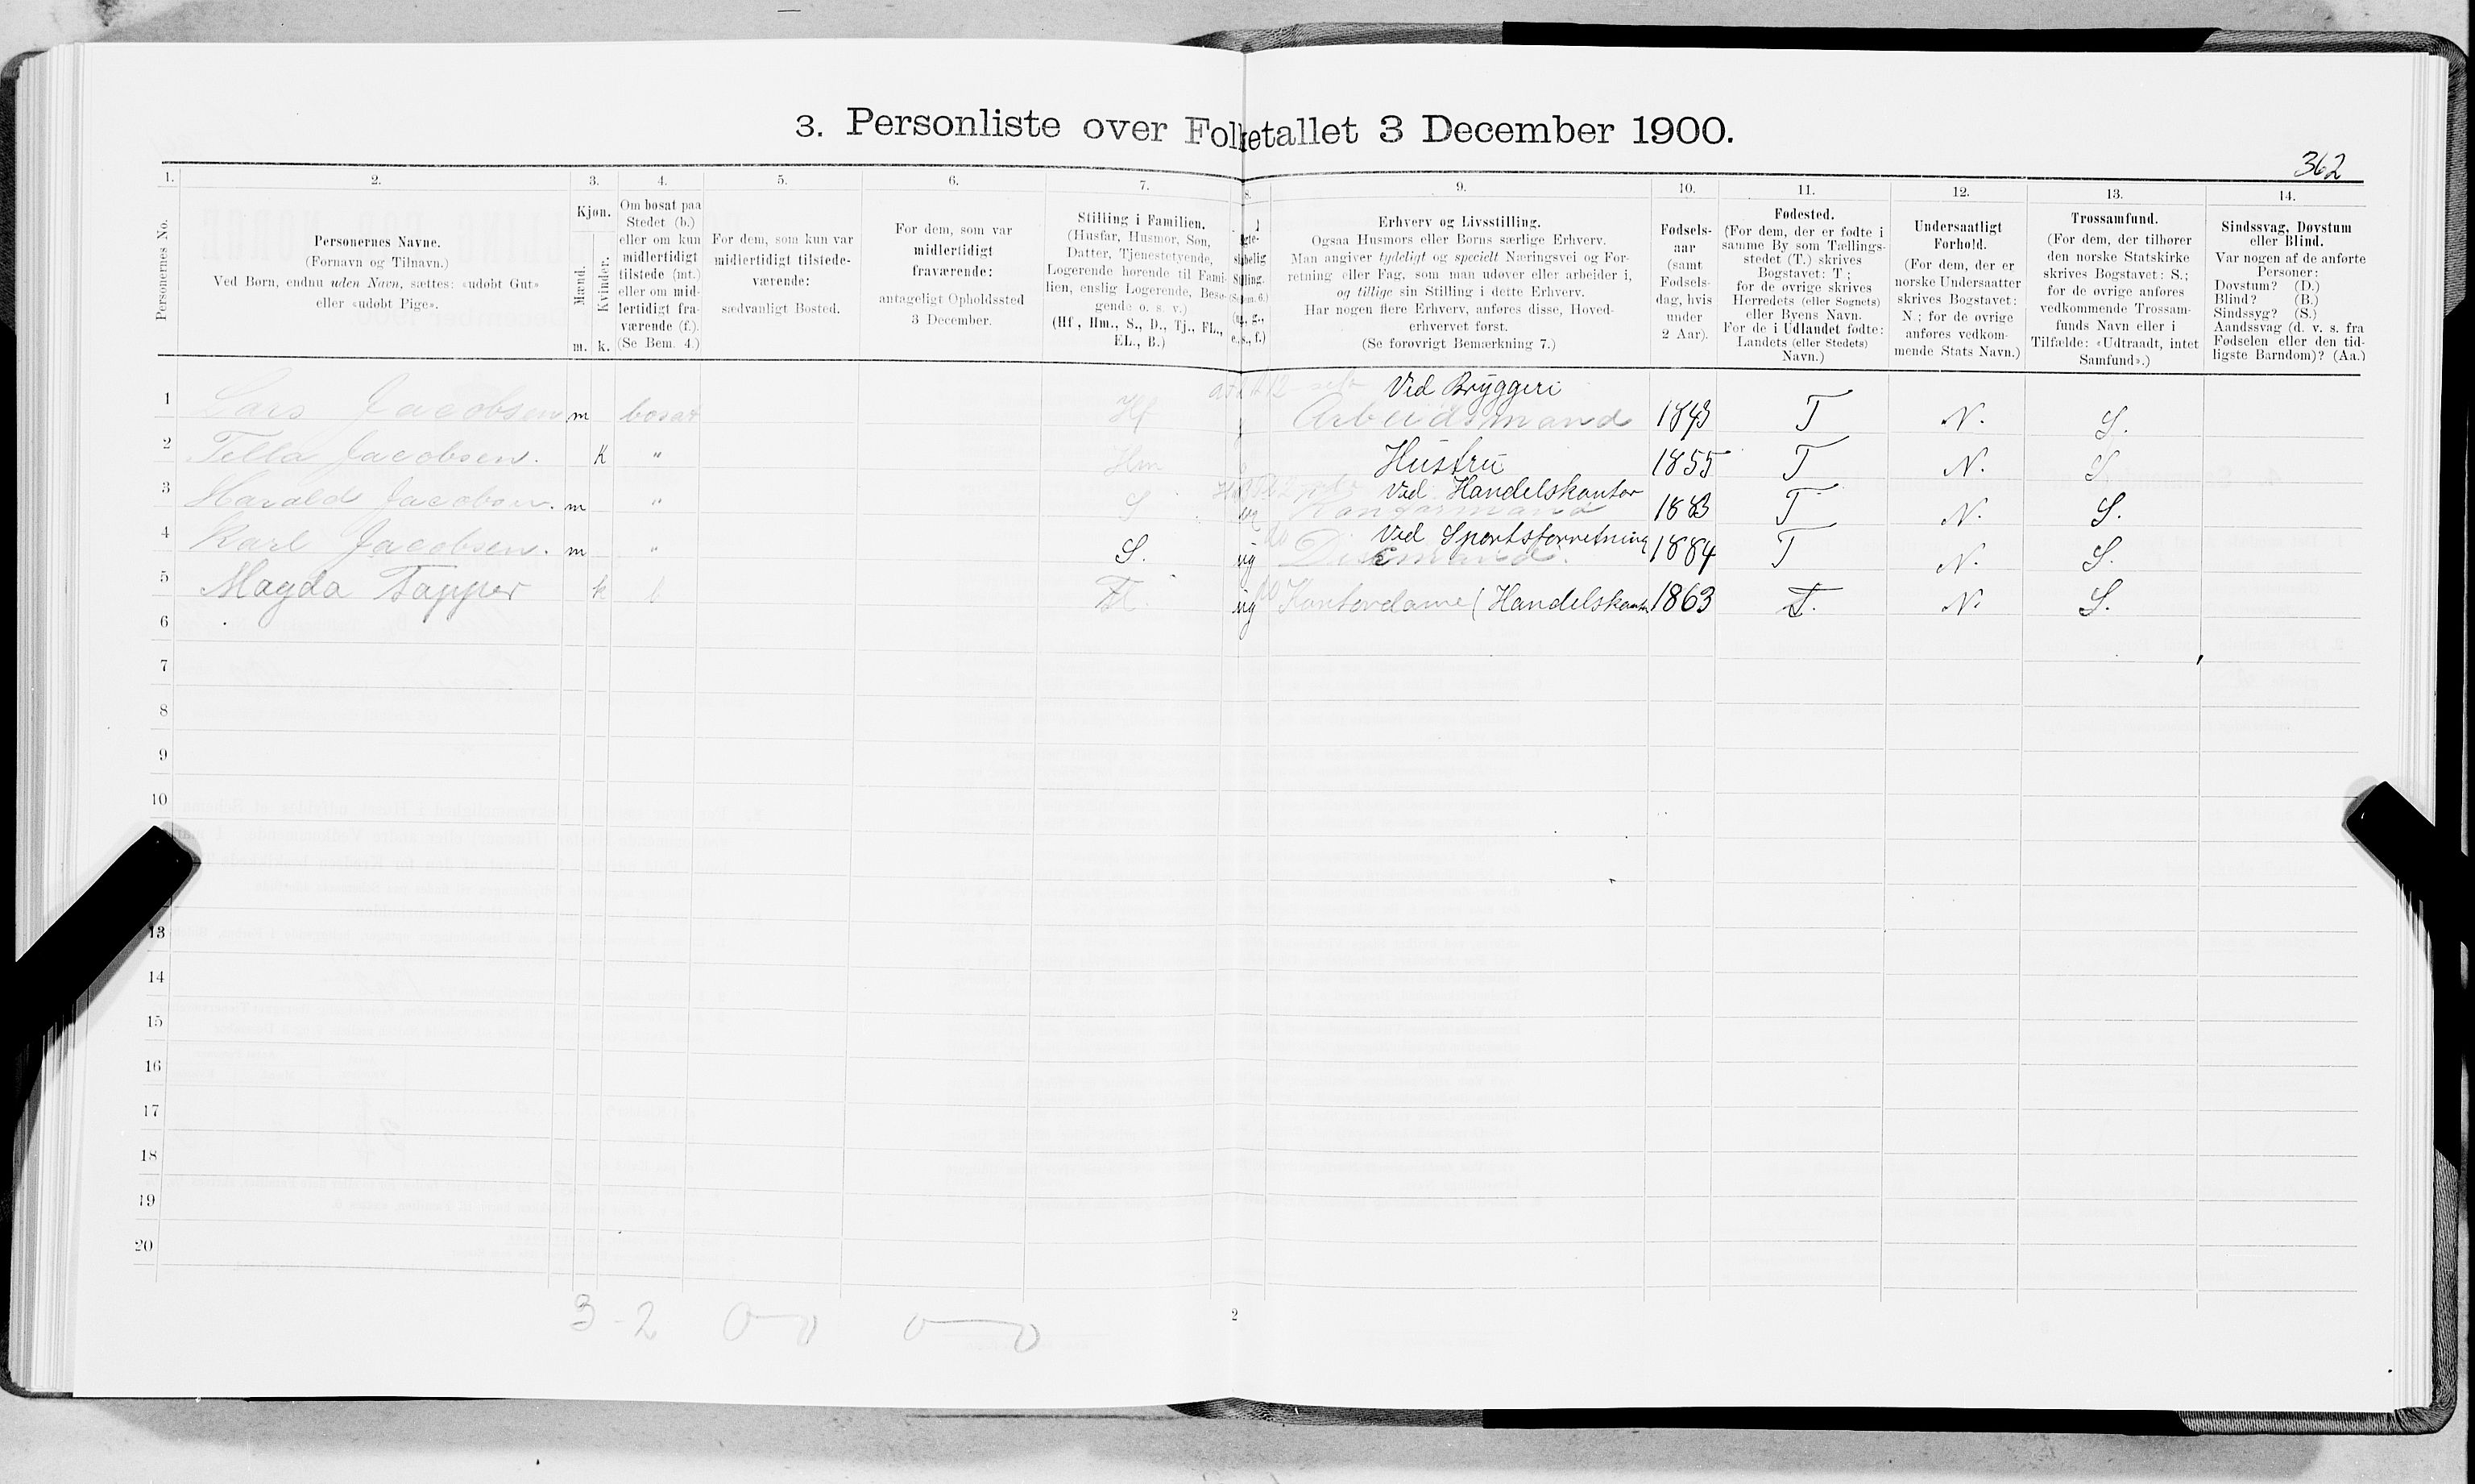 3. Personliste over Folketallet 3 December 1900.
362
1. 2. 3. 4. 5. 6. 7. 8. 9. 10. 11. 12. 13. 14.
Personernes No.
Personernes Navne.
(Fornavn og Tilnavn.)
Ved Børn, endnu uden Navn, sættes: «udøbt Gut»
eller «udøbt Pige».
Kjøn.
Mænd.
Kvinder.
m. k.
Om bosat paa
Stedet (b.)
eller om kun
midlertidigt
tilstede (mt.)
eller om mid-
lertidigt fra-
værende (f.).
(Se Bem. 4.)
For dem, som kun var
midlertidigt tilstede-
værende:
sædvanligt Bosted.
For dem, som var
midlertidigt
fraværende:
antageligt Opholdssted
3 December.
Stilling i Familien.
(Husfar, Husmor, Søn,
Datter, Tjenestetyende,
Logerende hørende til Fami-
lien, enslig Logerende, Besø-
gende o. s. v.)
(Hf., Hm., S., D., Tj., FL.,
EL., B.)
Erhverv og Livsstilling.
Ogsaa Husmors eller Børns særlige Erhverv.
Man angiver tydeligt og specielt Næringsvei og For-
retning eller Fag, som man udøver eller arbeider i,
og tillige sin Stilling i dette Erhverv.
Har nogen flere Erhverv, anføres disse, Hoved-
erhvervet først.
(Se forøvrigt Bemærkning 7.)
Fødsels-
aar
(samt
Fødsels-
dag, hvis
under
2 Aar).
Fødested.
(For dem, der er fødte i
samme By som Tællings-
stedet (T.) skrives
Bogstavet: T;
for de øvrige skrives
Herredets (eller Sognets)
eller Byens Navn.
For de i Udlandet fødte:
Landets (eller Stedets)
Navn.)
Undersaatligt
Forhold.
(For dem, der er
norske Undersaatter
skrives Bogstavet:
N.; for de øvrige
anføres vedkom-
mende Stats Navn.)
Trossamfund.
(For dem, der tilhører
den norske Statskirke
skrives Bogstavet: S.;
for de øvrige anføres
vedkommende Trossam-
funds Navn eller i
Tilfælde: «Udtraadt, intet
Samfund».)
Sindssvag, Døvstum
eller Blind.
Var nogen af de anførte
Personer:
Døvstum? (D.)
Blind? (B.)
Sindssyg? (S.)
Aandssvag (d. v. s. fra
Fødselen eller den tid-
ligste Barndom)? (Aa.)
Ved Bryggeri
1 Lars Jacobsen m bosat Hf g Arbeidsmand 1843 T N. S.
2 Tella Jacobsen. K " Hm Hustru 1855 T N. S
Ved Handelskontor
3 Harald Jacobsen. m " S ug Kontormand 1883 T N. S.
Ved Sportsforretning
4 Karl Jacobsen. m " S. ug Diskmand. 1884 T N. S.
5 Magda Tapper k b Fl. ug Kontordame (Handelskontor 1863 T. N. S.
6
7
8
9
10
13
14
15
16
17
18
19
20
3 - 2 0—0 0—0
2